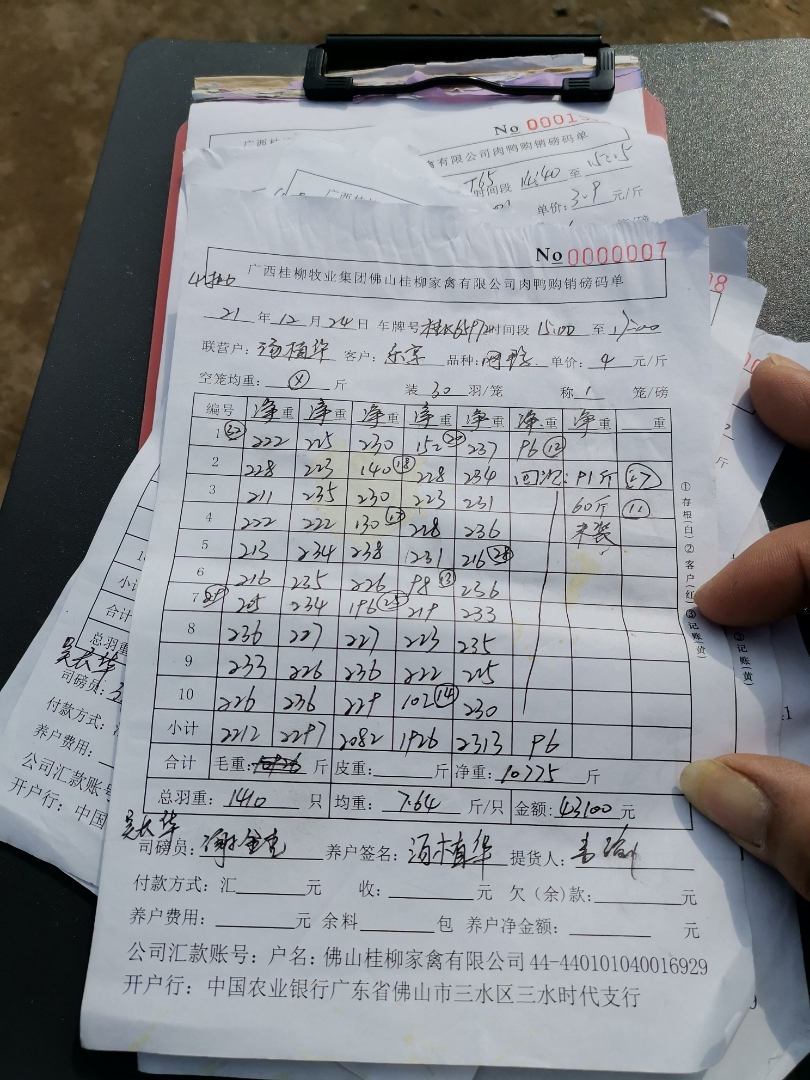 No 00015
有限公司肉鸭购销磅码单
时间段 14:40 至 15:25
单价: 3.9 元/斤
No 0000007
广西桂柳牧业集团佛山桂柳家禽有限公司肉鸭购销磅码单
21 年 12 月 24 日 车牌号 时间段 15:00 至 17:00
联营户: 汤植华 客户: 乐享 品种: 单价: 4 元/斤
空笼均重: 斤 装 30 羽/笼 称 1 笼/磅
编号 净重 净重 净重 净重 净重 净重 净重 重
1 222 225 230 152 20 237 96 12
2 228 223 140 18 228 234 : 91斤 27
3 211 235 230 223 231 60斤 11
4 222 222 130 17 228 236 未装
5 213 234 238 231 216 28
6 216 235 226 98 13 236
7 29 205 234 196 25 219 233
8 236 227 227 223 235
9 233 226 236 222 225
10 226 236 229 102 14 230
小计 2212 2297 2082 1926 2313 96
合计 毛重: 斤 皮重: 斤 净重: 10775 斤
总羽重: 1410 只 均重: 7.64 斤/只 金额: 43100 元
吴长华
司磅员: 养户签名: 汤植华 提货人:
付款方式: 汇 元 收: 元 欠(余)款: 元
养户费用: 元 余料 包 养户净金额: 元
公司汇款账号: 户名: 佛山桂柳家禽有限公司 44-440101040016929
开户行: 中国农业银行广东省佛山市三水区三水时代支行
①存根(白)②客户(红)③记账(黄)
小计
合计
总羽重
吴长华
司磅员:
付款方式:
养户费用:
公司汇款账号
开户行: 中国
③记账(黄)